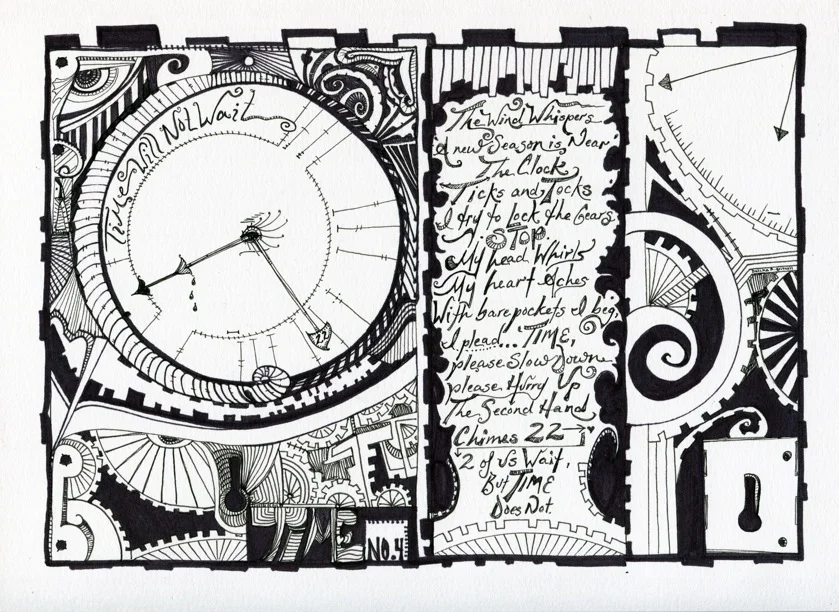 Time Will Not Wait
22
No. 4
The Wind Whispers
A new Season is Near
The Clock
Ticks and Tocks
I try to lock the Gears
STOP
My head Whirls
My heart Aches
With bare pockets I beg
I plead... TIME,
please Slow Down
please Hurry Up
The Second Hand
Chimes 22
2 of us Wait,
But TIME
Does Not.